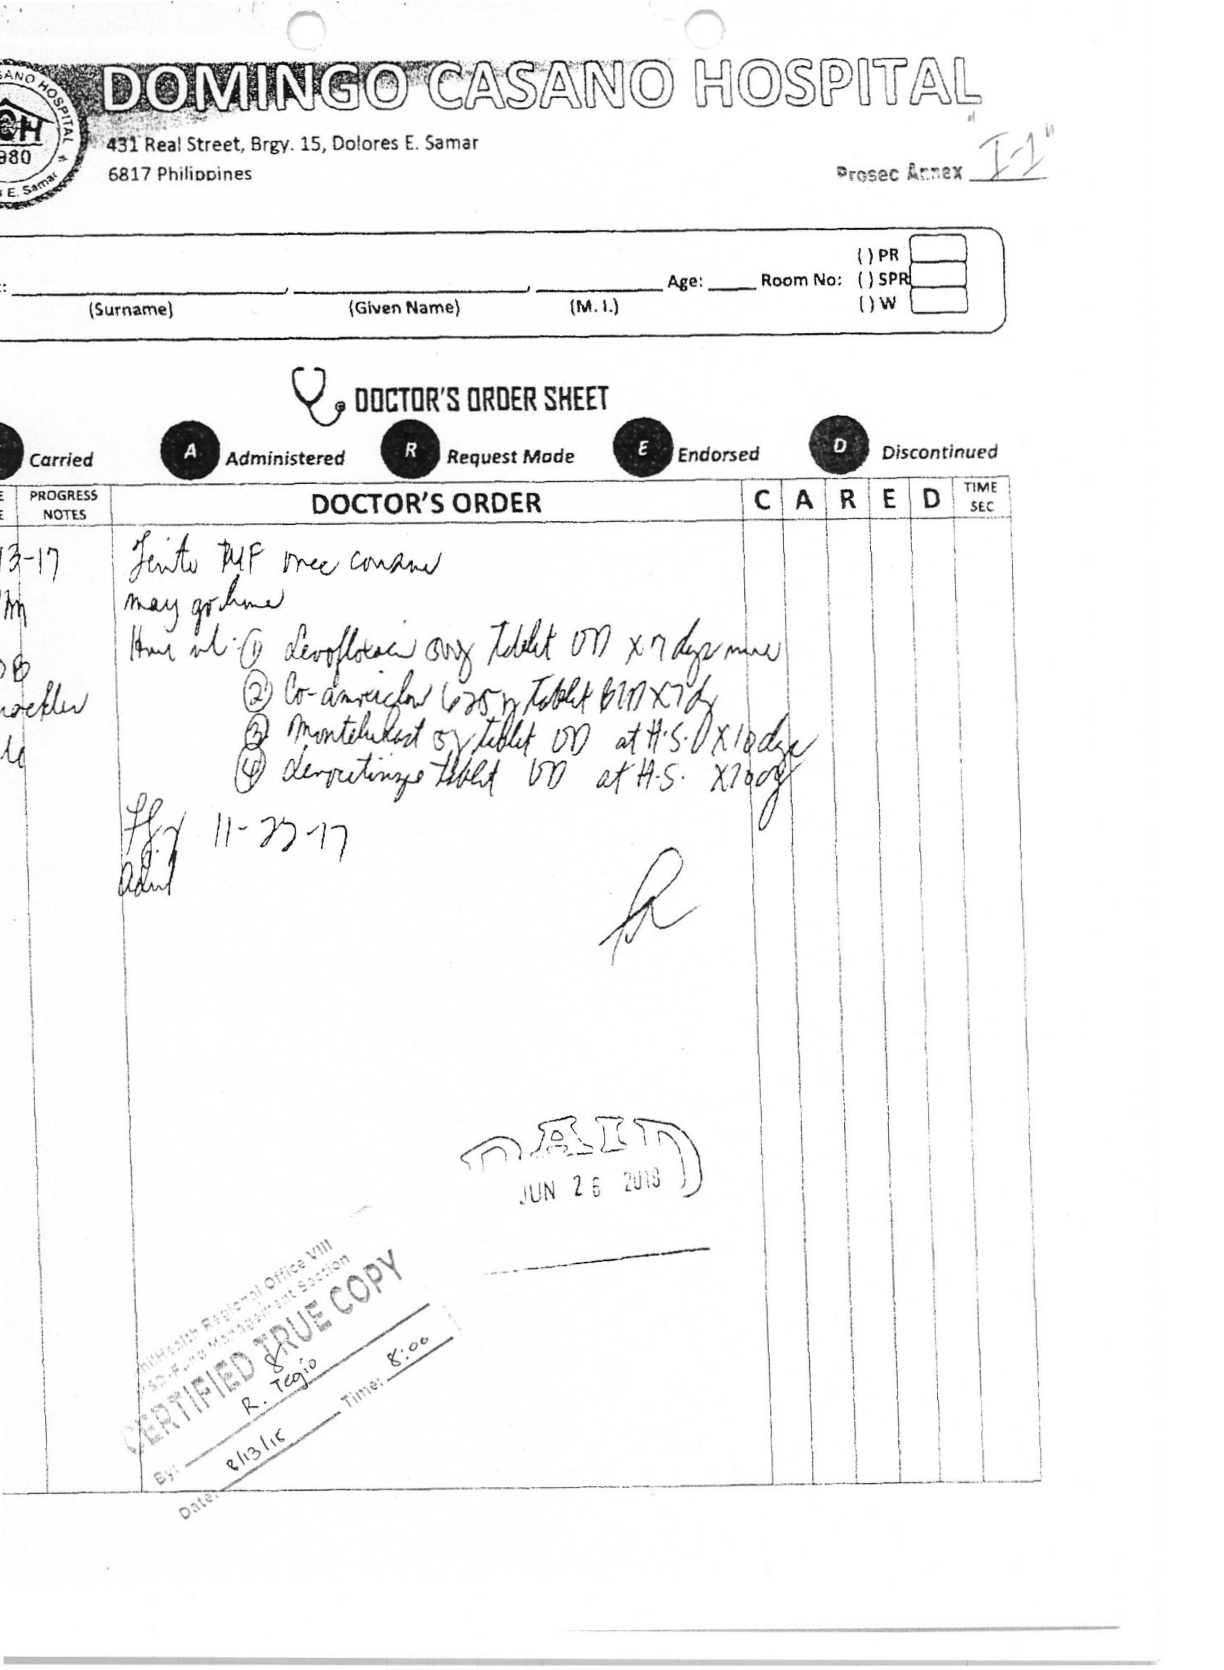 DOMINGO CASANO HOSPITAL
431 Real Street, Brgy. 15, Dolores E. Samar
6817 Philippines
Prosec Annex "I-1"
SANO HOSPITAL
CH
980
E. Samar
(Surname) (Given Name) (M.I.) Age: Room No: ( ) PR
( ) SPR
( ) W
DOCTOR'S ORDER SHEET
Carried A Administered R Request Made E Endorsed D Discontinued
PROGRESS NOTES DOCTOR'S ORDER C A R E D TIME SEC
13-17 IVF once consume
may go home
① Levofloxacin Tablet OD x 7 days
② Co-amoxiclav 625 Tablet BID x 7 d
③ Montelukast Tablet OD at H.S. x 10 days
④ Levocetirizine Tablet OD at H.S. x
11-23-17
PAID
JUN 26 2018
PhilHealth Regional Office VIII
Fund Management Section
CERTIFIED TRUE COPY
By: R. Tegio
Date: 8/13/18 Time: 8:00